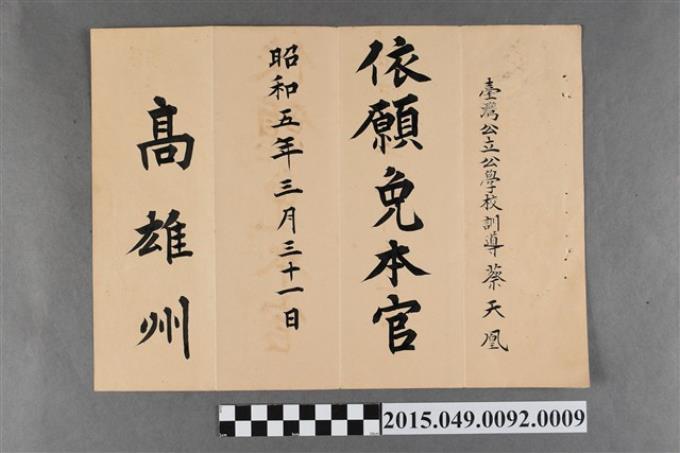 臺灣公立公學校訓導 蔡天凰
依願免本官
昭和五年三月三十一日
高雄州
2015.049.0092.0009